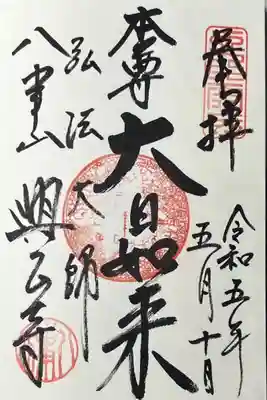 奉拝
令和五年
五月十日
本尊
大日如来
弘法大師
興正寺